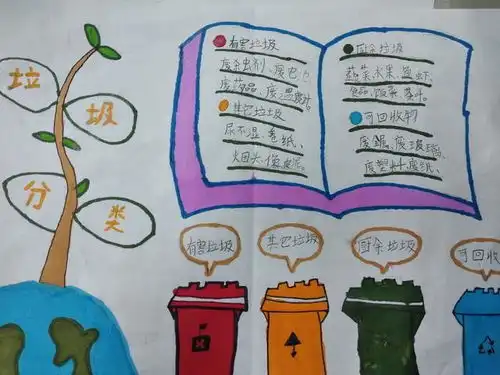 垃
圾
分
类
有害垃圾
废杀虫剂、废电池
废药品、废温度计。
其它垃圾
尿不湿、卷纸、
烟头、
厨余垃圾
蔬菜、水果、鱼虾、
食品、饭菜、
可回收物
废玻璃、
废塑料、废纸、
有害垃圾
其它垃圾
厨余垃圾
可回收